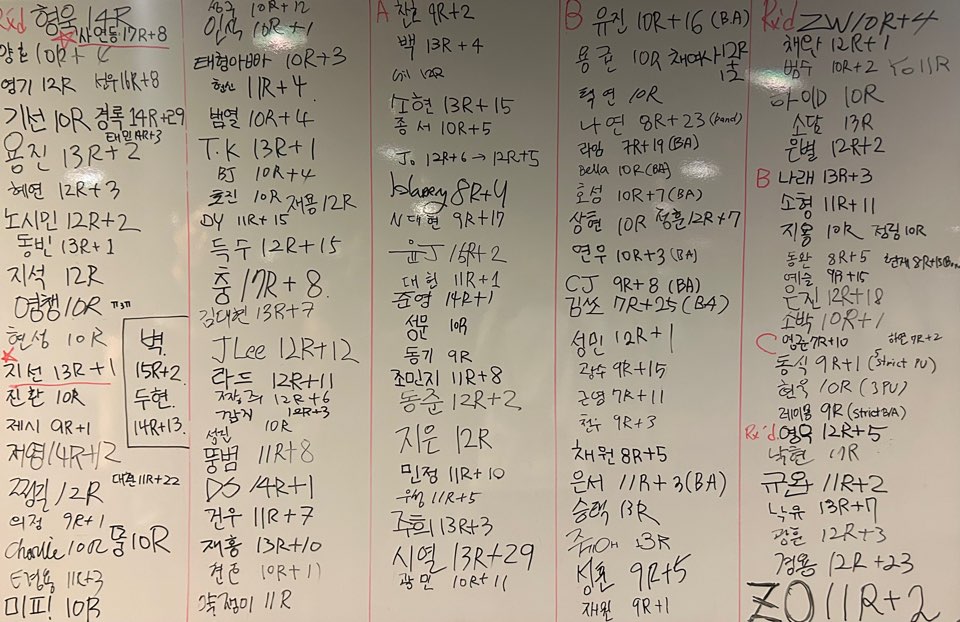 Rx'd 형욱 14R
사연동 17R+8
양호 10R+4
영기 12R 선우 16R+8
기선 10R 경록 14R+29
용진 13R+2
혜연 12R+3
노시민 12R+2
동빈 13R+1
지석 12R
영행 10R
현성 10R
지선 13R+1
진환 10R
제시 9R+1
저영 14R+12
쩡길 12R 대환 11R+22
의정 9R+1
Charlie 10R 중 10R
E경용 11R+3
미피! 10R
벽.
15R+2.
두현.
14R+13.
성규 10R+12
인석 10R+1
태형아빠 10R+3
형신 11R+4.
범열 10R+4
T.K 13R+1
BJ 10R+4
호진 10R 재용 12R
DY 11R+15
득수 12R+15
충 17R+8.
김대현 13R+7
JLee 12R+12
라드 12R+11
12R+6
깜지 12R+3
성진 10R
뚱범 11R+8
DS 14R+1
건우 11R+7
재홍 13R+10
10R+11
11R
A 찬호 9R+2
백 13R+4
12R
소현 13R+15
종서 10R+5
Jo 12R+6 → 12R+5
blanny 8R+4
N대현 9R+17
윤J 16R+2
대현 11R+1
준영 14R+1
성문 10R
동기 9R
조민지 11R+8
동준 12R+2
지은 12R
민정 11R+10
11R+5
주희 13R+3
시열 13R+29
광민 10R+11
B 유진 10R+16 (BA)
용균 10R
턱연 10R
나연 8R+23 (band)
라임 7R+19 (BA)
Bella 10R (BA)
호성 10R+7 (BA)
상현 10R 정훈 12R+7
연우 10R+3 (BA)
CJ 9R+8 (BA)
김쏘 7R+25 (BA)
성민 12R+1
광수 9R+15
근영 7R+11
천수 9R+3
채원 8R+5
은서 11R+3 (BA)
승택 13R
13R
성훈 9R+5
재원 9R+1
Rx'd ZW 10R+4
채안 12R+1
범수 10R+2 YO 11R
하이D 10R
소담 13R
은별 12R+2
B 나래 13R+3
소형 11R+11
지용 10R 정림 10R
동완 8R+5
예슬 9R+15
은진 12R+18
소박 10R+1
C 영균 7R+10 하연 7R+2
동식 9R+1 (Strict PU)
현욱 10R (3PU)
제이용 9R (strict B/A)
Rx'd. 영욱 12R+5
낙현 11R
규온 11R+2
낙유 13R+7
광훈 12R+3
경용 12R+23
ZO 11R+2